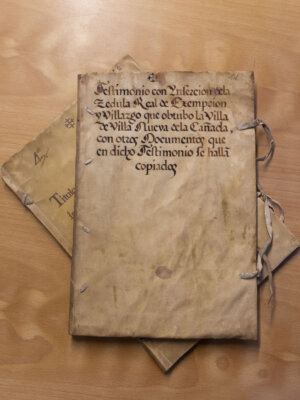 Testimonio con Ynsercion de la
Zedula Real de Exempcion
y Villazgo que obtubo la Villa
de Villa Nueva de la Cañada,
con otros Documentos que
en dicho Testimonio se hallã
copiados
Titulo